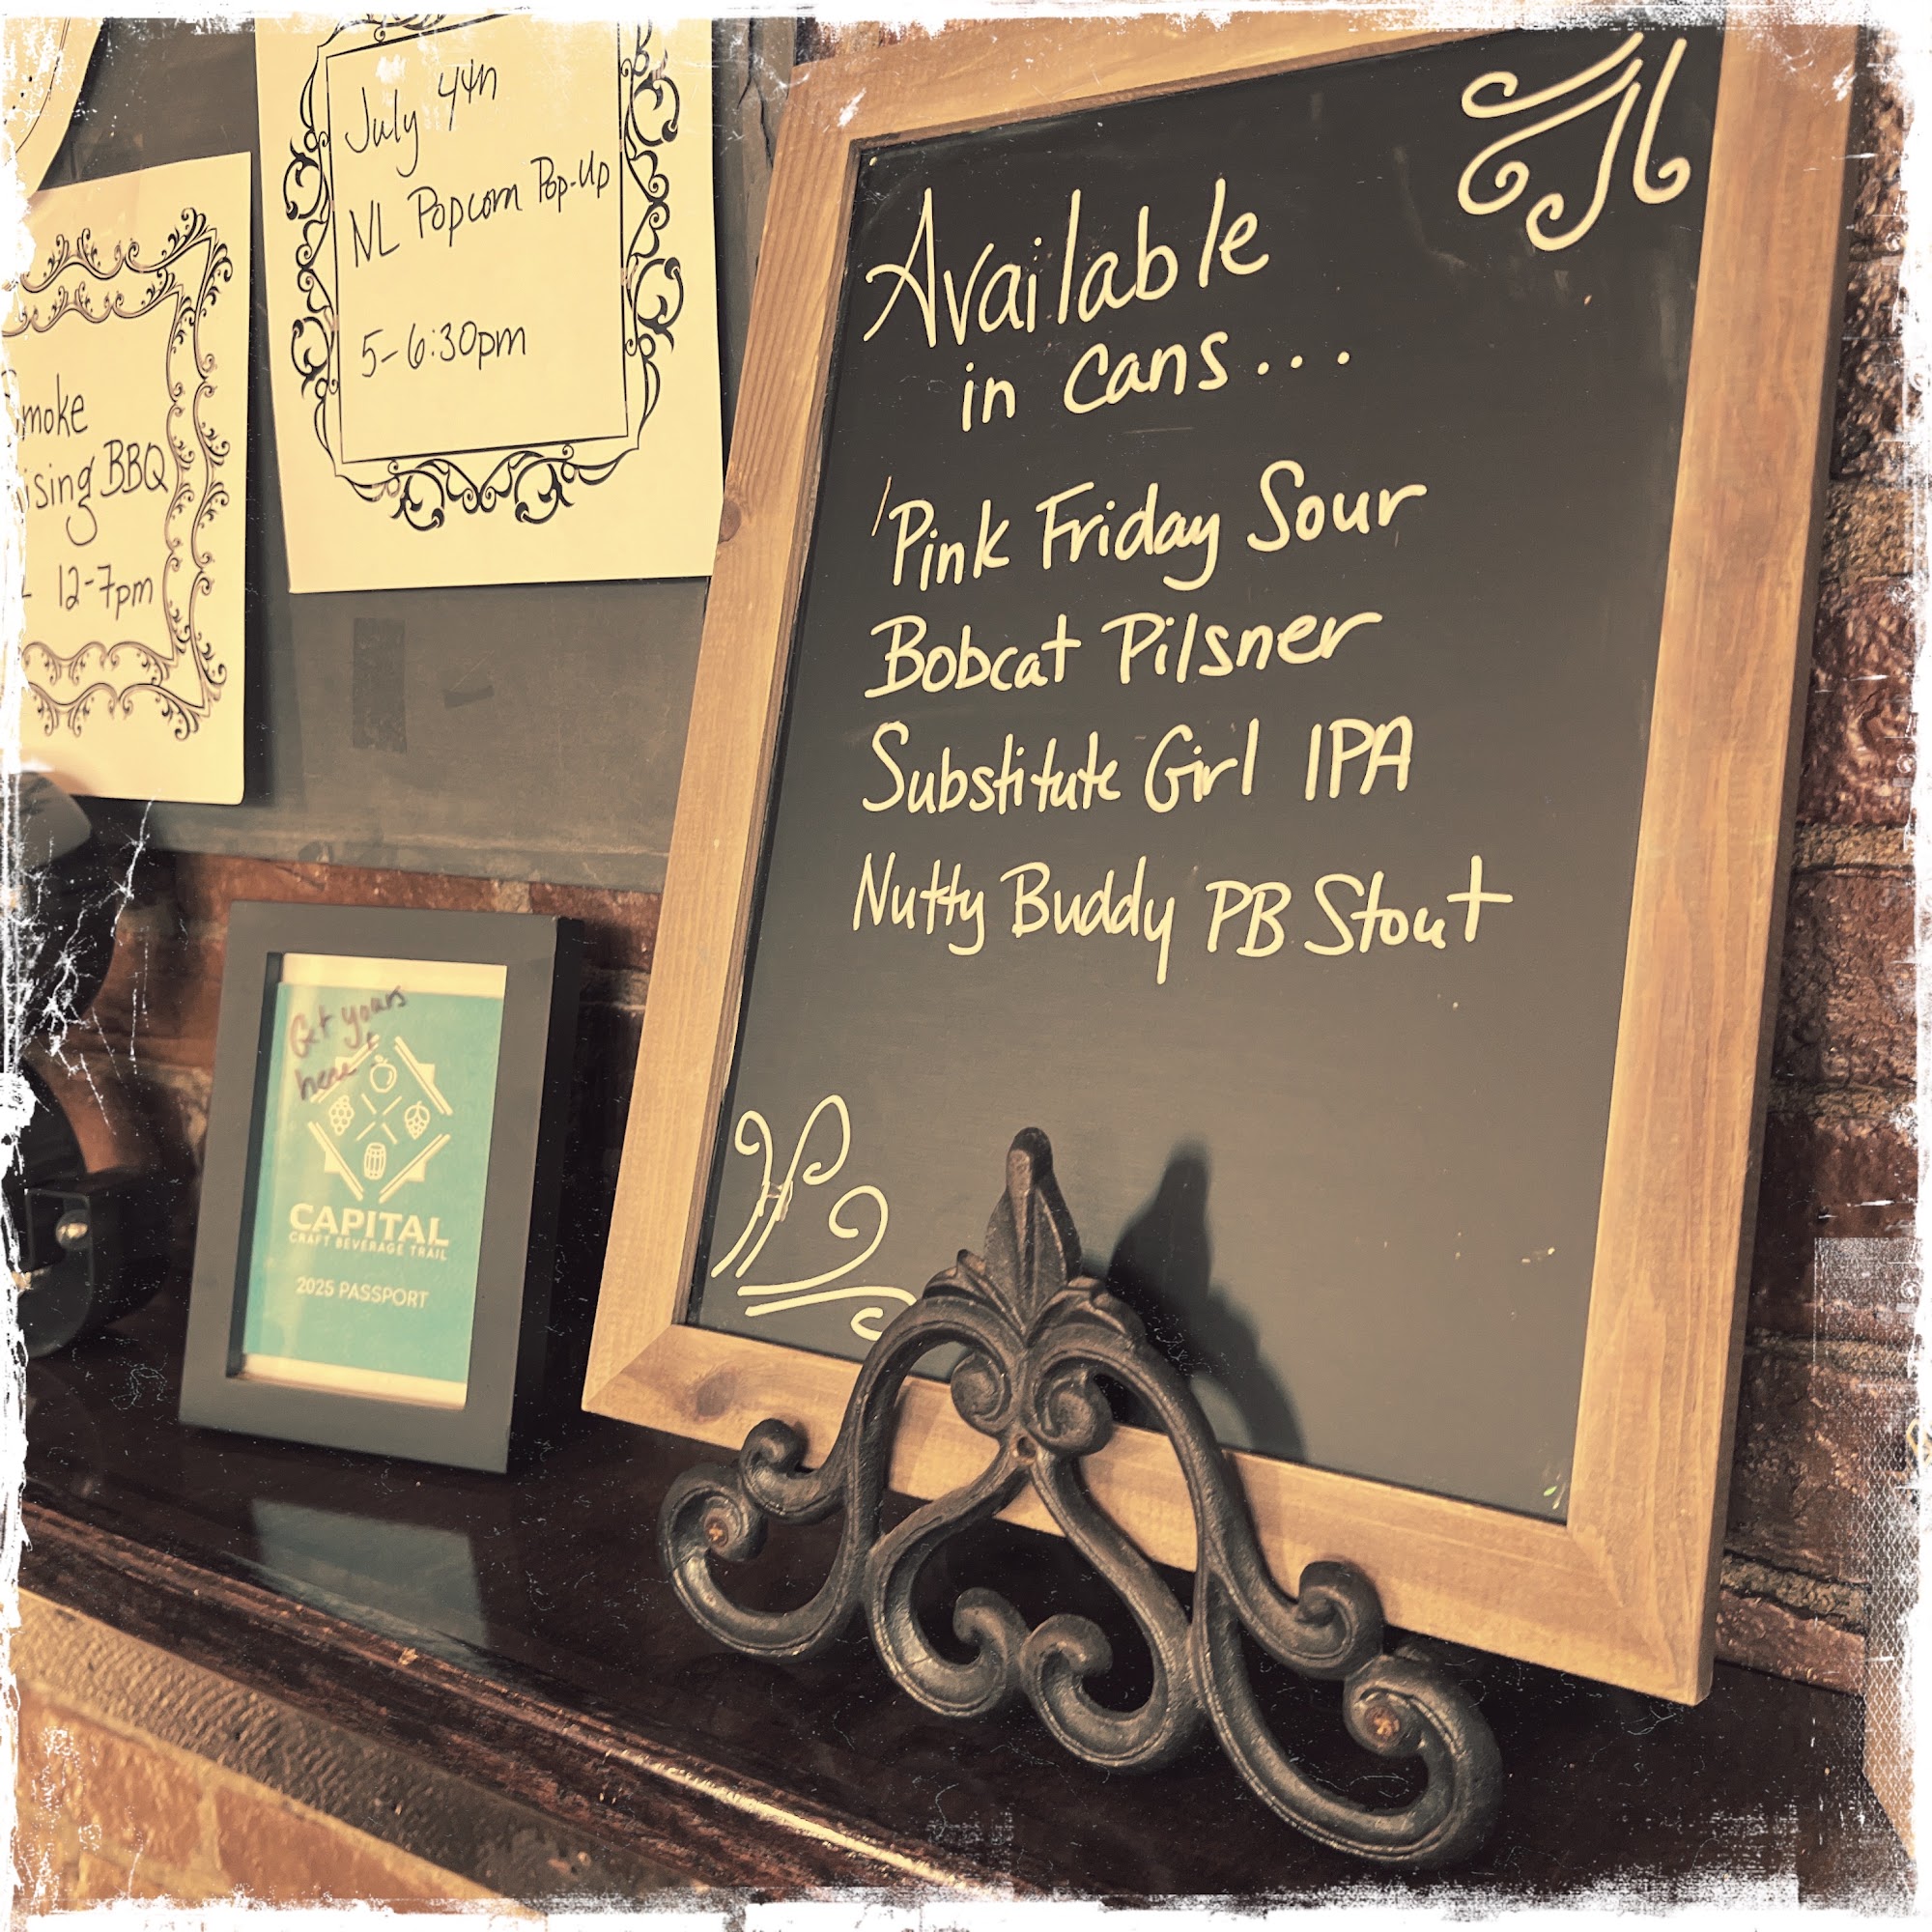 July 4th
NL Popcorn Pop-Up
5-6:30pm
moke
ising BBQ
12-7pm
Available
in cans...
Pink Friday Sour
Bobcat Pilsner
Substitute Girl IPA
Nutty Buddy PB Stout
Get yours
here
CAPITAL
CRAFT BEVERAGE TRAIL
2025 PASSPORT